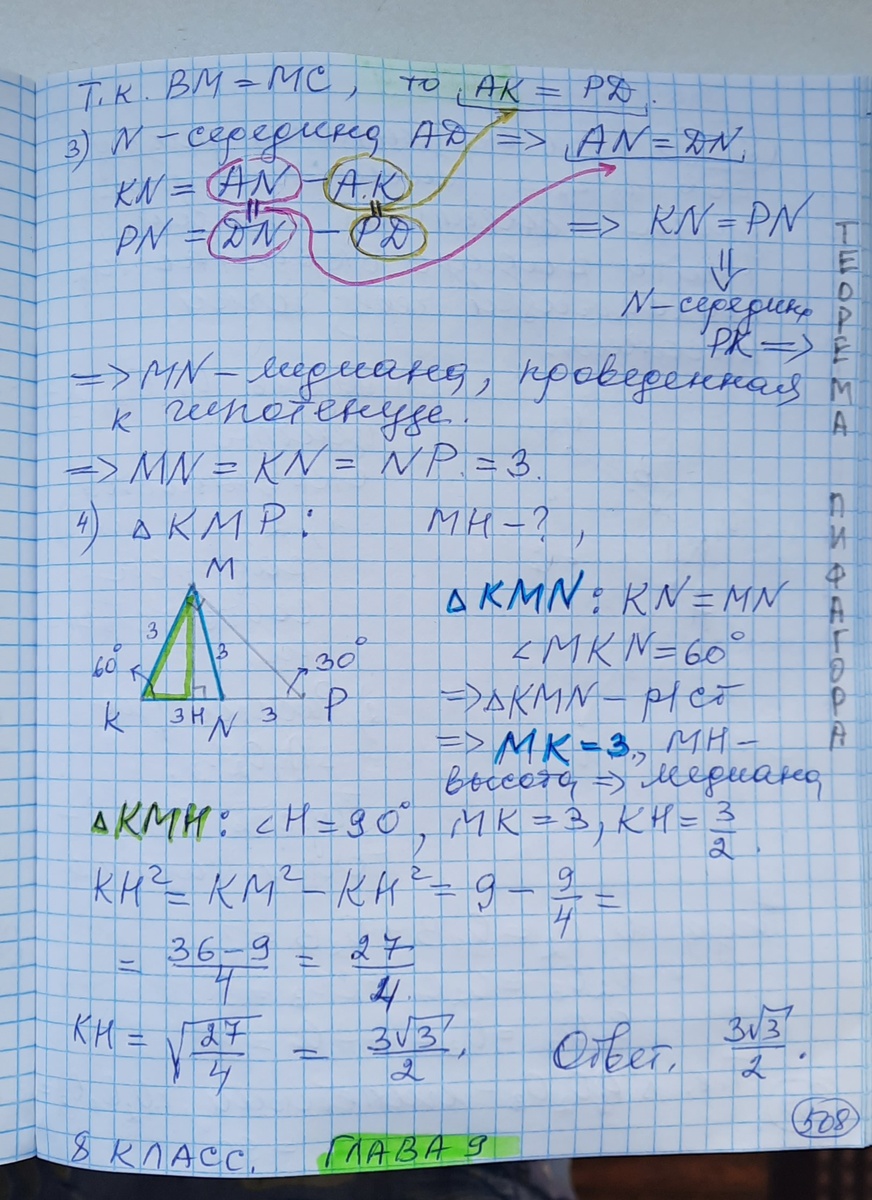 Т.к. BM = MC, то AK = PD.
3) N – середина AD => AN = DN.
KN = AN – AK
PN = DN – PD => KN = PN
N – середина
PK =>
=> MN – медиана, проведенная
к гипотенузе.
=> MN = KN = NP. = 3.
4) △KMP: MH – ?,
M
3
3
60°
30°
K
3
H
N
3
P
△KMN: KN = MN
∠MKN = 60°
=> △KMN – р/ст
=> MK = 3., MH –
высота => медиана
△KMH: ∠H = 90°, MK = 3, KH = 3/2.
KH² = KM² – KH² = 9 – 9/4 =
= 36 – 9/4 = 27/4.
KH = √27/4 = 3√3/2. Ответ. 3√3/2.
508
8 КЛАСС. ГЛАВА 9
ТЕОРЕМА ПИФАГОРА